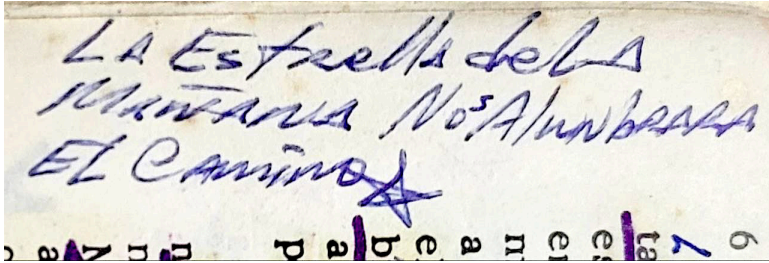 LA Estrella de LA
MAÑANA Nos AlunbRARA
EL CAmino